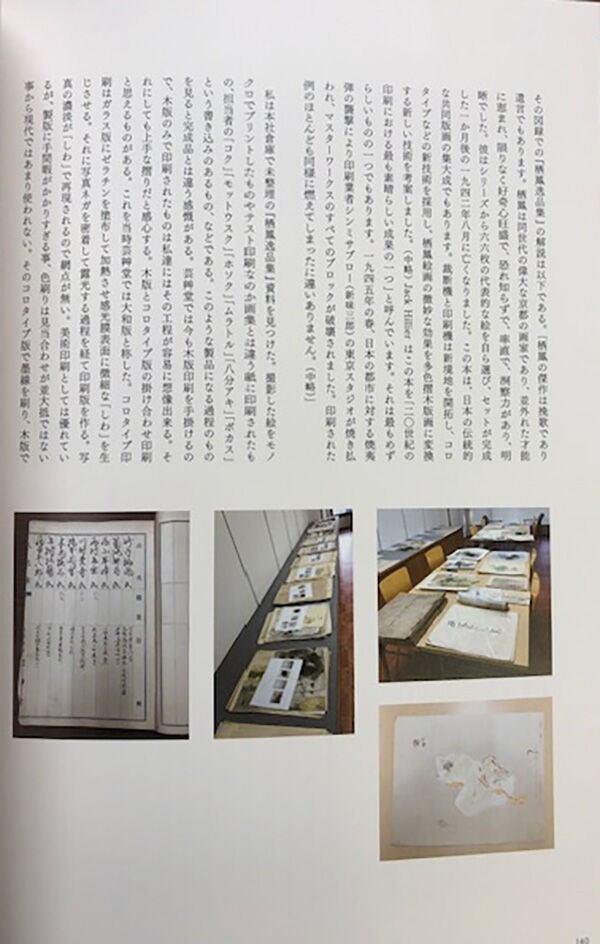 その図録での『栖鳳逸品集』の解説は以下である。「栖鳳の傑作は挽歌であり
遺言でもあります。栖鳳は同世代の偉大な京都の画家であり、並外れた才能
に恵まれ、限りなく好奇心旺盛で、恐れ知らずで、率直で、洞察力があり、明
晰でした。彼はシリーズから六六枚の代表的な絵を自ら選び、セットが完成
した一か月後の一九四二年八月に亡くなりました。この本は、日本の伝統的
な共同版画の集大成でもあります。裁断機と印刷機は新境地を開拓し、コロ
タイプなどの新技術を採用し、栖鳳絵画の微妙な効果を多色摺木版画に変換
する新しい技術を考案しました。（中略）Jack Hillier はこの本を「二〇世紀の
印刷における最も素晴らしい成果の一つ」と呼んでいます。それは最もめず
らしいものの一つでもあります。一九四五年の春、日本の都市に対する焼夷
弾の襲撃により印刷業者シンミサブロー（新味三郎）の東京スタジオが焼き払
われ、マスターワークスのすべてのブロックが破壊されました。印刷された
例のほとんども同様に燃えてしまったに違いありません。（中略）」
私は本社倉庫で未整理の『栖鳳逸品集』資料を見つけた。撮影した絵をモノ
クロでプリントしたものやテスト印刷なのか画集とは違う紙に印刷されたも
の、担当者の「コク」「モットウスク」「ホソク」「ムラトル」「八分アキ」「ボカス」
という書き込みのあるもの、などである。このような製品になる過程のもの
を見ると完成品とは違う感慨がある。芸艸堂では今も木版印刷を手掛けるの
で、木版のみで印刷されたものは私達にはその工程が容易に想像出来る。そ
れにしても上手な摺りだと感心する。木版とコロタイプ版の掛け合わせ印刷
と思えるものがある。これを当時芸艸堂では大和版と称した。コロタイプ印
刷はガラス版にゼラチンを塗布して加熱させ感光膜表面に微細な「しわ」を生
じさせる。それに写真ネガを密着して露光する過程を経て印刷版を作る。写
真の濃淡が「しわ」で再現されるので網点が無い。美術印刷としては優れてい
るが、製版に手間暇がかかりすぎる事、色刷りは見当合わせが並大抵ではない
事から現代ではあまり使われない。そのコロタイプ版で墨線を刷り、木版で